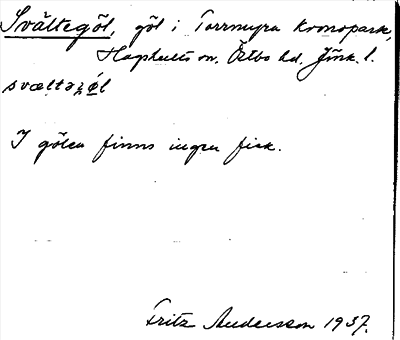 Svältegöl, göl i Torrmyra kronopark,
Hagshults sn, Östbo hd, Jönk. l.
svæltəɡöl
I gölen finns ingen fisk.
Fritz Andersson 1937.